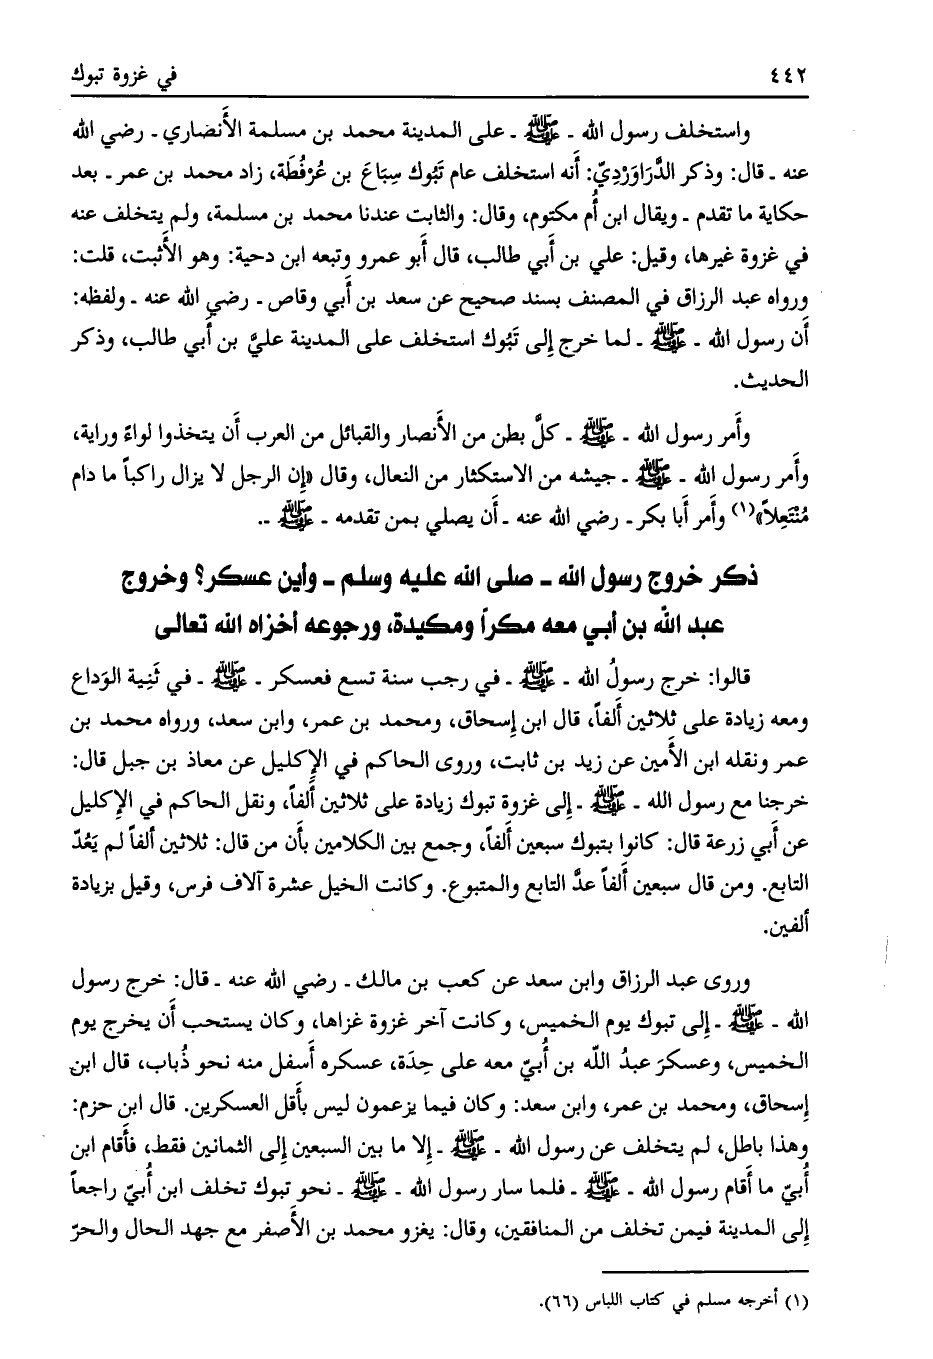 ٤٤٢ في غزوة تبوك
واستخلف رسول الله ـ ﷺ ـ على المدينة محمد بن مسلمة الأَنصاري ـ رضي الله
عنه ـ قال: وذكر الدَّرَاوَرْدِيّ: أَنه استخلف عام تَبُوك سِبَاعَ بن عُرْفُطَة، زاد محمد بن عمر ـ بعد
حكاية ما تقدم ـ ويقال ابن أُم مكتوم، وقال: والثابت عندنا محمد بن مسلمة، ولم يتخلف عنه
في غزوة غيرها، وقيل: علي بن أَبي طالب، قال أَبو عمرو وتبعه ابن دحية: وهو الأَثبت، قلت:
ورواه عبد الرزاق في المصنف بسند صحيح عن سعد بن أَبي وقاص ـ رضي الله عنه ـ ولفظه:
أَن رسول الله ـ ﷺ ـ لما خرج إِلى تَبُوك استخلف على المدينة عليَّ بن أَبي طالب، وذكر
الحديث.
وأَمر رسول الله ـ ﷺ ـ كلَّ بطن من الأَنصار والقبائل من العرب أَن يتخذوا لواءً وراية،
وأَمر رسول الله ـ ﷺ ـ جيشه من الاستكثار من النعال، وقال «إِن الرجل لا يزال راكباً ما دام
مُنْتَعِلاً»(١) وأَمر أَبا بكر ـ رضي الله عنه ـ أَن يصلي بمن تقدمه ـ ﷺ ـ.
ذكر خروج رسول الله ـ صلى الله عليه وسلم ـ وأين عسكر؟ وخروج
عبد الله بن أبي معه مكراً ومكيدة، ورجوعه أخزاه الله تعالى
قالوا: خرج رسولُ الله ـ ﷺ ـ في رجب سنة تسع فعسكر ـ ﷺ ـ في ثَنِية الوَداع
ومعه زيادة على ثلاثين أَلفاً، قال ابن إِسحاق، ومحمد بن عمر، وابن سعد، ورواه محمد بن
عمر ونقله ابن الأَمين عن زيد بن ثابت، وروى الحاكم في الإِكليل عن معاذ بن جبل قال:
خرجنا مع رسول الله ـ ﷺ ـ إِلى غزوة تبوك زيادة على ثلاثين أَلفاً، ونقل الحاكم في الإِكليل
عن أَبي زرعة قال: كانوا بتبوك سبعين أَلفاً، وجمع بين الكلامين بأَن من قال: ثلاثين أَلفاً لم يَعُدّ
التابع. ومن قال سبعين أَلفاً عدَّ التابع والمتبوع. وكانت الخيل عشرة آلاف فرس، وقيل بزيادة
أَلفين.
وروى عبد الرزاق وابن سعد عن كعب بن مالك ـ رضي الله عنه ـ قال: خرج رسول
الله ـ ﷺ ـ إِلى تبوك يوم الخميس، وكانت آخر غزوة غزاها، وكان يستحب أَن يخرج يوم
الخميس، وعسكرَ عبدُ اللّه بن أُبيّ معه على حِدَة، عسكره أَسفل منه نحو ذُباب، قال ابن
إِسحاق، ومحمد بن عمر، وابن سعد: وكان فيما يزعمون ليس بأَقل العسكرين. قال ابن حزم:
وهذا باطل، لم يتخلف عن رسول الله ـ ﷺ ـ إِلا ما بين السبعين إِلى الثمانين فقط، فأَقام ابن
أُبيّ ما أَقام رسول الله ـ ﷺ ـ فلما سار رسول الله ـ ﷺ ـ نحو تبوك تخلف ابن أُبيّ راجعاً
إِلى المدينة فيمن تخلف من المنافقين، وقال: يغزو محمد بن الأَصفر مع جهد الحال والحرّ
(١) أخرجه مسلم في كتاب اللباس (٦٦).